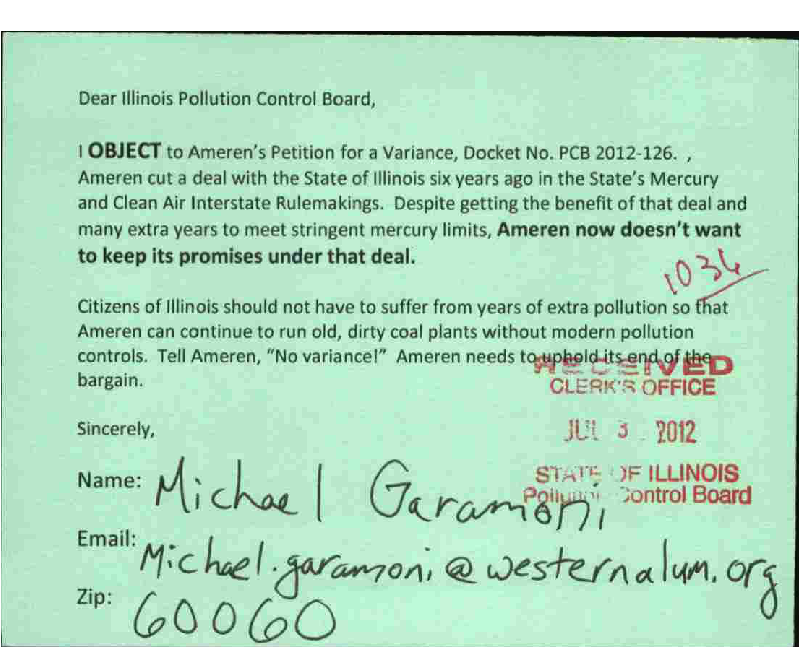 Dear Illinois Pollution Control Board,
I OBJECT to Ameren's Petition for a Variance, Docket No. PCB 2012-126. ,
Ameren cut a deal with the State of Illinois six years ago in the State's Mercury
and Clean Air Interstate Rulemakings. Despite getting the benefit of that deal and
many extra years to meet stringent mercury limits, Ameren now doesn't want
to keep its promises under that deal.
1034
Citizens of Illinois should not have to suffer from years of extra pollution so that
Ameren can continue to run old, dirty coal plants without modern pollution
controls. Tell Ameren, "No variance!" Ameren needs to uphold its end of the
bargain.
RECEIVED
CLERK'S OFFICE
JUL 3 2012
STATE OF ILLINOIS
Pollution Control Board
Sincerely,
Name: Michael Garamoni
Email: Michael.garamoni@westernalum.org
Zip: 60060